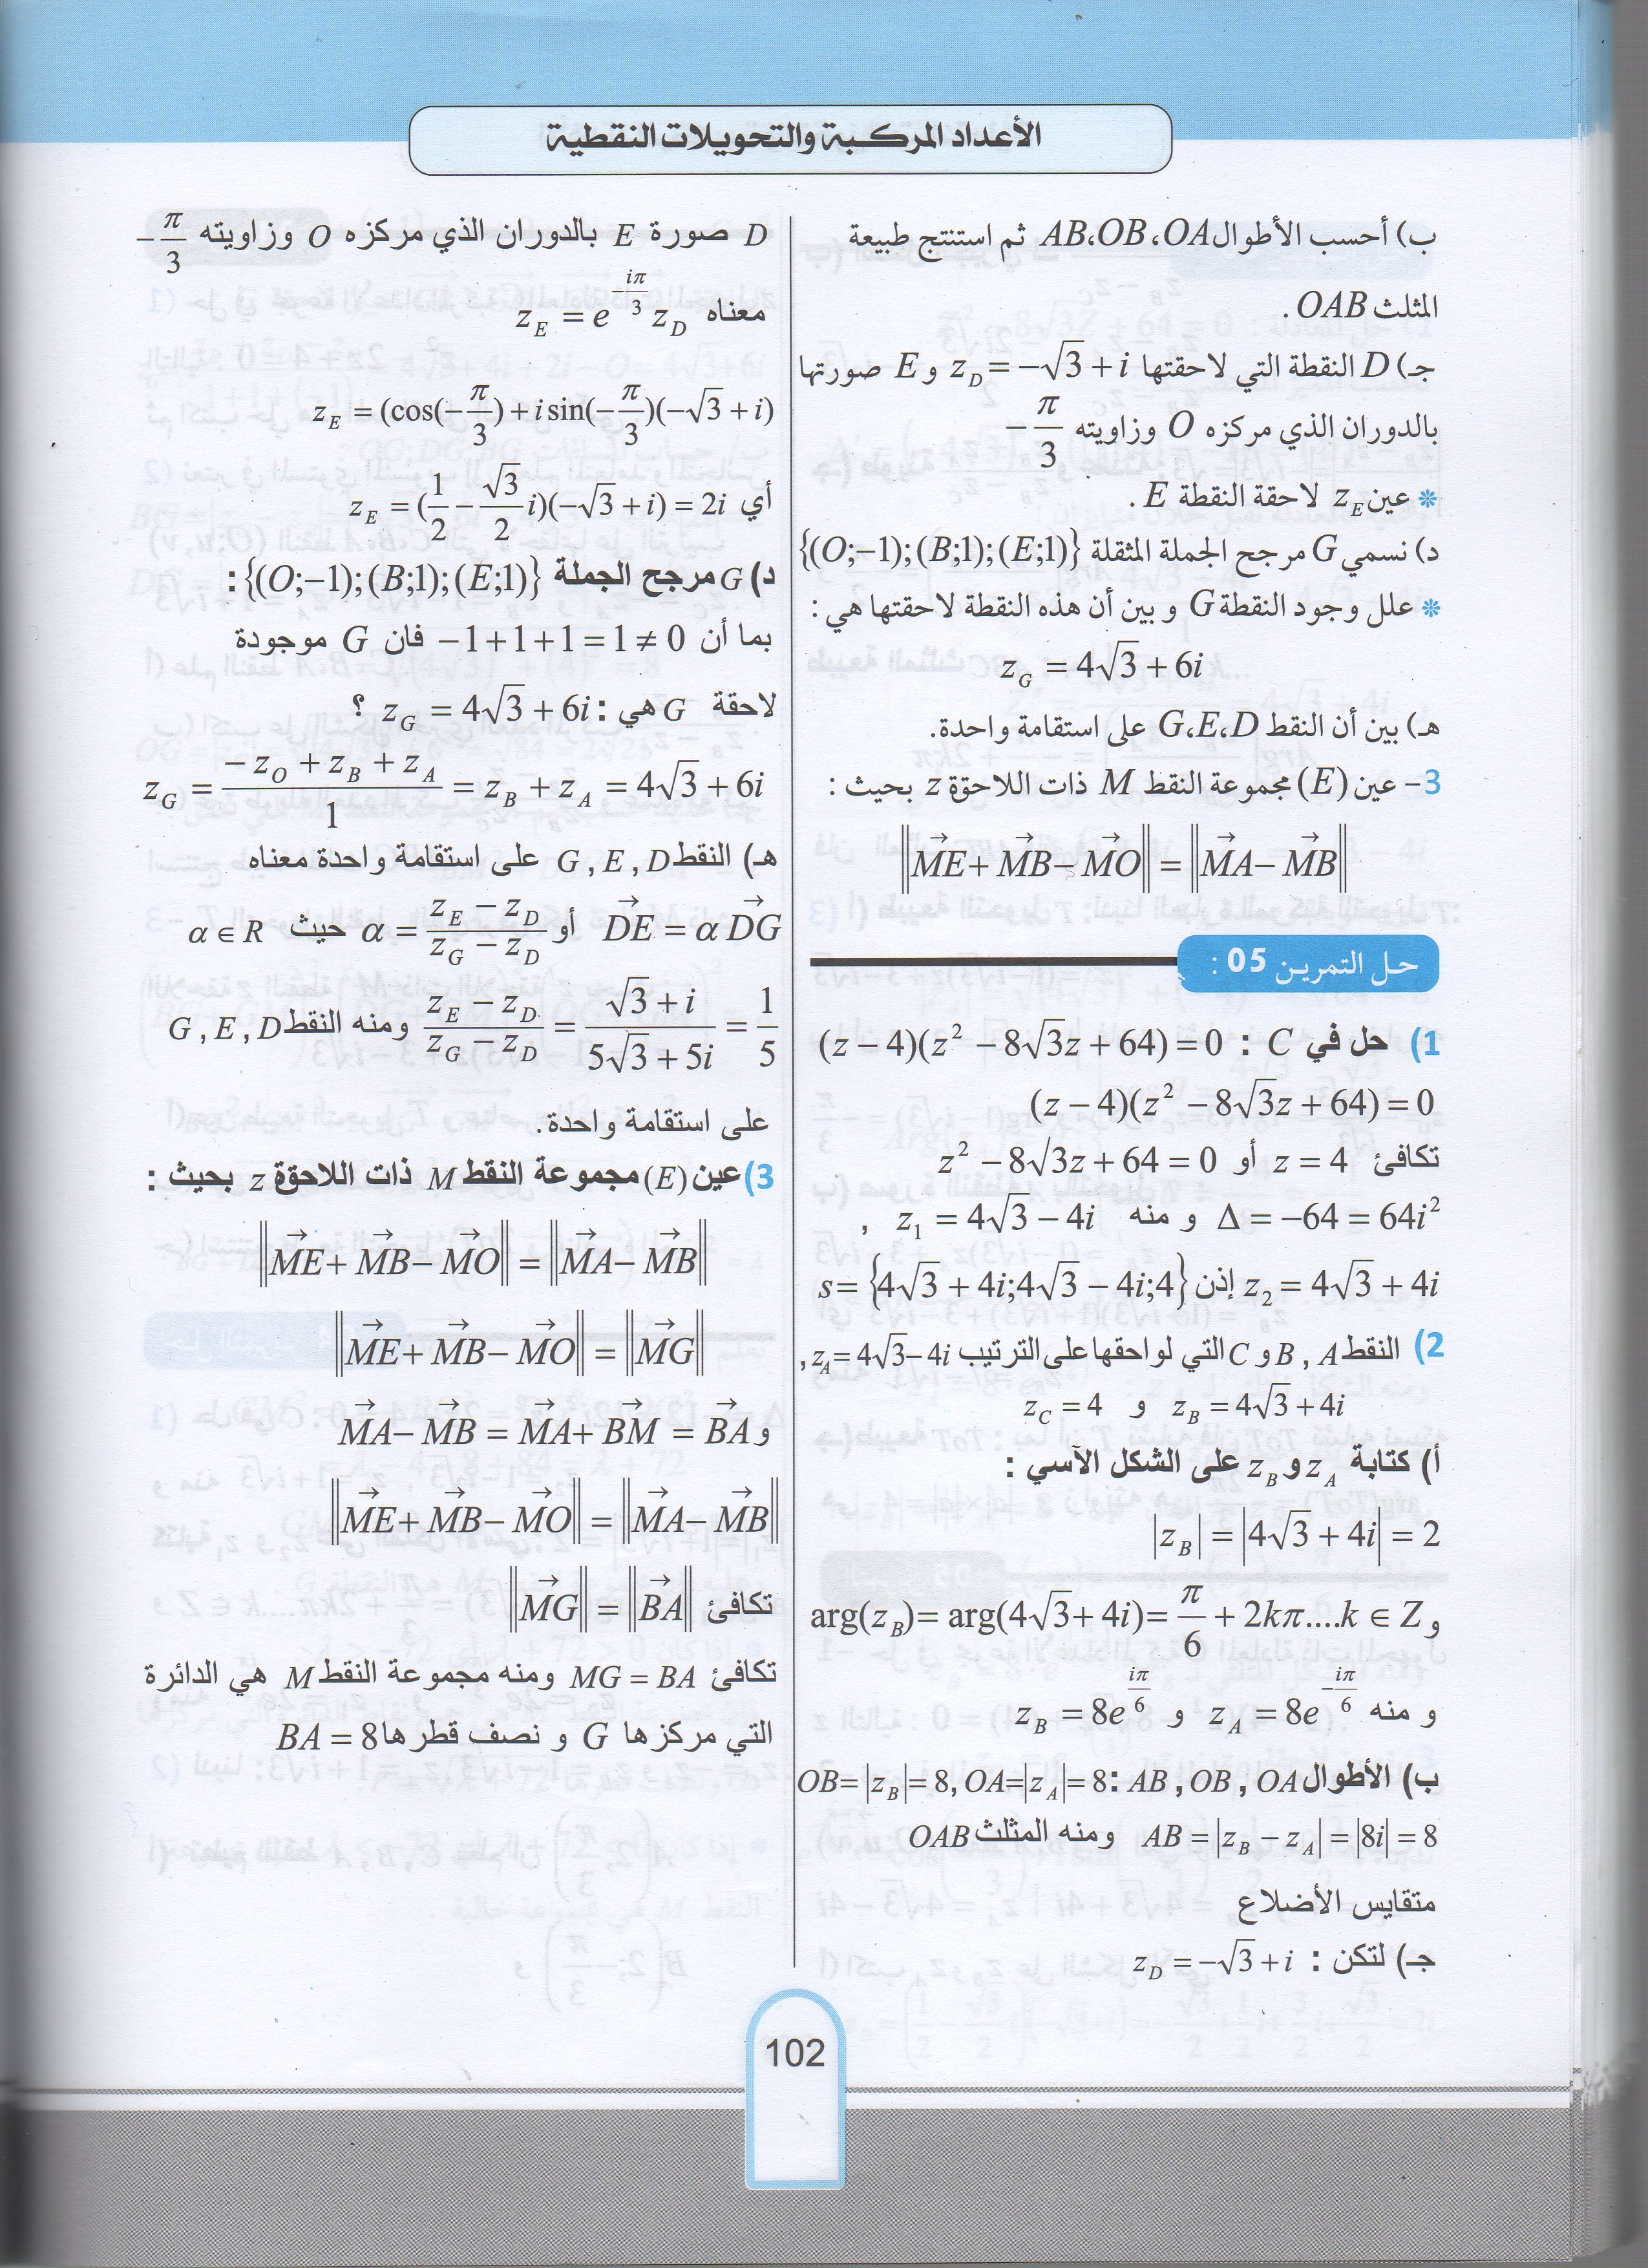 الأعداد المركبة والتحويلات النقطية
ب) أحسب الأطوال OA، OB، AB ثم استنتج طبيعة
المثلث OAB.
جـ) D النقطة التي لاحقتها z_D = -√3 + i و E صورتها
بالدوران الذي مركزه O وزاويته -π/3
* عين z_E لاحقة النقطة E.
د) نسمي G مرجح الجملة المثقلة {(O;-1);(B;1);(E;1)}
* علل وجود النقطة G و بين أن هذه النقطة لاحقتها هي :
z_G = 4√3 + 6i
هـ) بين أن النقط G،E،D على استقامة واحدة.
3- عين (E) مجموعة النقط M ذات اللاحقة z بحيث :
‖ME→ + MB→ - MO→‖ = ‖MA→ - MB→‖
حل التمرين 05 :
1) حل في C : (z-4)(z² - 8√3z + 64) = 0
(z-4)(z² - 8√3z + 64) = 0
تكافئ z = 4 أو z² - 8√3z + 64 = 0
Δ = -64 = 64i² و منه z₁ = 4√3 - 4i ,
z₂ = 4√3 + 4i إذن s = {4√3 + 4i; 4√3 - 4i; 4}
2) النقط A , B و C التي لواحقها على الترتيب z_A = 4√3 - 4i ,
z_B = 4√3 + 4i و z_C = 4
أ) كتابة z_A و z_B على الشكل الآسي :
|z_B| = |4√3 + 4i| = 2
و arg(z_B) = arg(4√3 + 4i) = π/6 + 2kπ....k ∈ Z
و منه z_A = 8e^(-iπ/6) و z_B = 8e^(iπ/6)
ب) الأطوال AB , OB , OA : OB = |z_B| = 8, OA = |z_A| = 8
AB = |z_B - z_A| = |8i| = 8 ومنه المثلث OAB
متقايس الأضلاع
جـ) لتكن : z_D = -√3 + i
D صورة E بالدوران الذي مركزه O وزاويته -π/3
معناه z_E = e^(-iπ/3) z_D
z_E = (cos(-π/3) + i sin(-π/3)(-√3 + i)
أي z_E = (1/2 - √3/2 i)(-√3 + i) = 2i
د) G مرجح الجملة {(O;-1);(B;1);(E;1)} :
بما أن -1+1+1 = 1 ≠ 0 فان G موجودة
لاحقة G هي : z_G = 4√3 + 6i ؟
z_G = (-z_O + z_B + z_A)/1 = z_B + z_A = 4√3 + 6i
هـ) النقط G , E , D على استقامة واحدة معناه
DE→ = α DG→ أو α = (z_E - z_D)/(z_G - z_D) حيث α ∈ R
(z_E - z_D)/(z_G - z_D) = (√3 + i)/(5√3 + 5i) = 1/5 ومنه النقط G , E , D
على استقامة واحدة.
3) عين (E) مجموعة النقط M ذات اللاحقة z بحيث :
‖ME→ + MB→ - MO→‖ = ‖MA→ - MB→‖
‖ME→ + MB→ - MO→‖ = ‖MG→‖
و MA→ - MB→ = MA→ + BM→ = BA→
‖ME→ + MB→ - MO→‖ = ‖MA→ - MB→‖
تكافئ ‖MG→‖ = ‖BA→‖
تكافئ MG = BA ومنه مجموعة النقط M هي الدائرة
التي مركزها G و نصف قطرها BA = 8
102